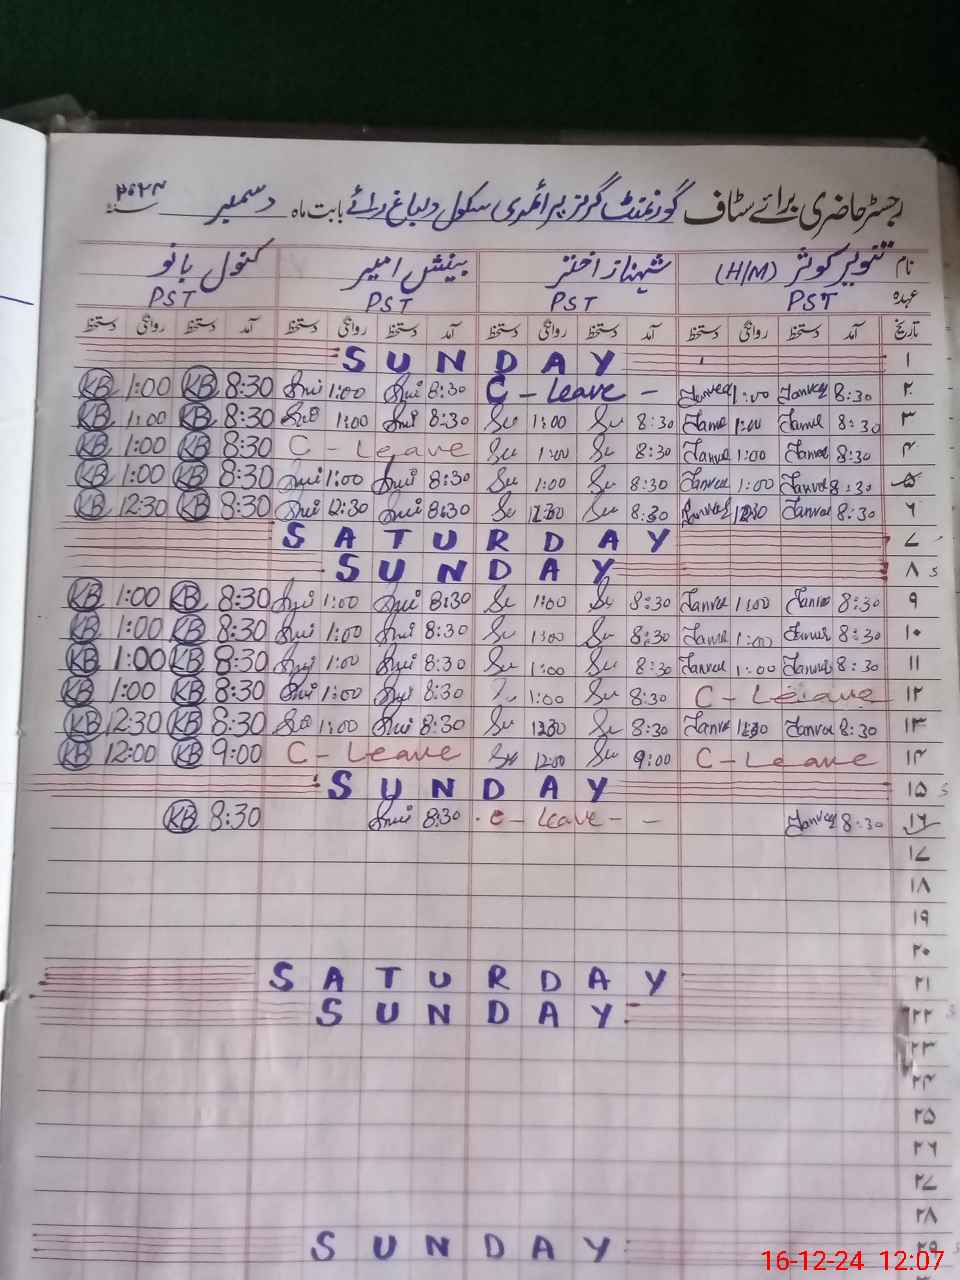 رجسٹر حاضری برائے سٹاف گورنمنٹ گرلز پرائمری سکول دلباغ رائے بابت ماہ دسمبر سنہ ۲۰۲۴
نام تنویر کوثر (H/M) شہناز اختر بینش امیر کنول بانو
عہدہ PST PST PST PST
تاریخ آمد دستخط روانگی دستخط آمد دستخط روانگی دستخط آمد دستخط روانگی دستخط آمد دستخط روانگی دستخط
۱ SUNDAY
۲ 8:30 1:00 C - Leave - 8:30 1:00 8:30 KB 1:00 KB
۳ 8:30 1:00 8:30 1:00 8:30 1:00 8:30 KB 1:00 KB
۴ 8:30 1:00 8:30 1:00 C - Leave 8:30 KB 1:00 KB
۵ 8:30 1:00 8:30 1:00 8:30 1:00 8:30 KB 1:00 KB
۶ 8:30 12:30 8:30 12:30 8:30 12:30 8:30 KB 12:30 KB
۷ SATURDAY
۸ SUNDAY S
۹ 8:30 1:00 8:30 1:00 8:30 1:00 8:30 KB 1:00 KB
۱۰ 8:30 1:00 8:30 1:00 8:30 1:00 8:30 KB 1:00 KB
۱۱ 8:30 1:00 8:30 1:00 8:30 1:00 8:30 KB 1:00 KB
۱۲ C - Leave 8:30 1:00 8:30 1:00 8:30 KB 1:00 KB
۱۳ 8:30 8:30 8:30 1:00 8:30 KB 12:30 KB
۱۴ C - Leave 9:00 12:00 C - Leave 9:00 KB 12:00 KB
۱۵ SUNDAY S
۱۶ 8:30 C - Leave - - 8:30 8:30 KB
۱۷
۱۸
۱۹
۲۰
۲۱ SATURDAY
۲۲ SUNDAY S
۲۳
۲۴
۲۵
۲۶
۲۷
۲۸
۲۹ SUNDAY S
16-12-24 12:07